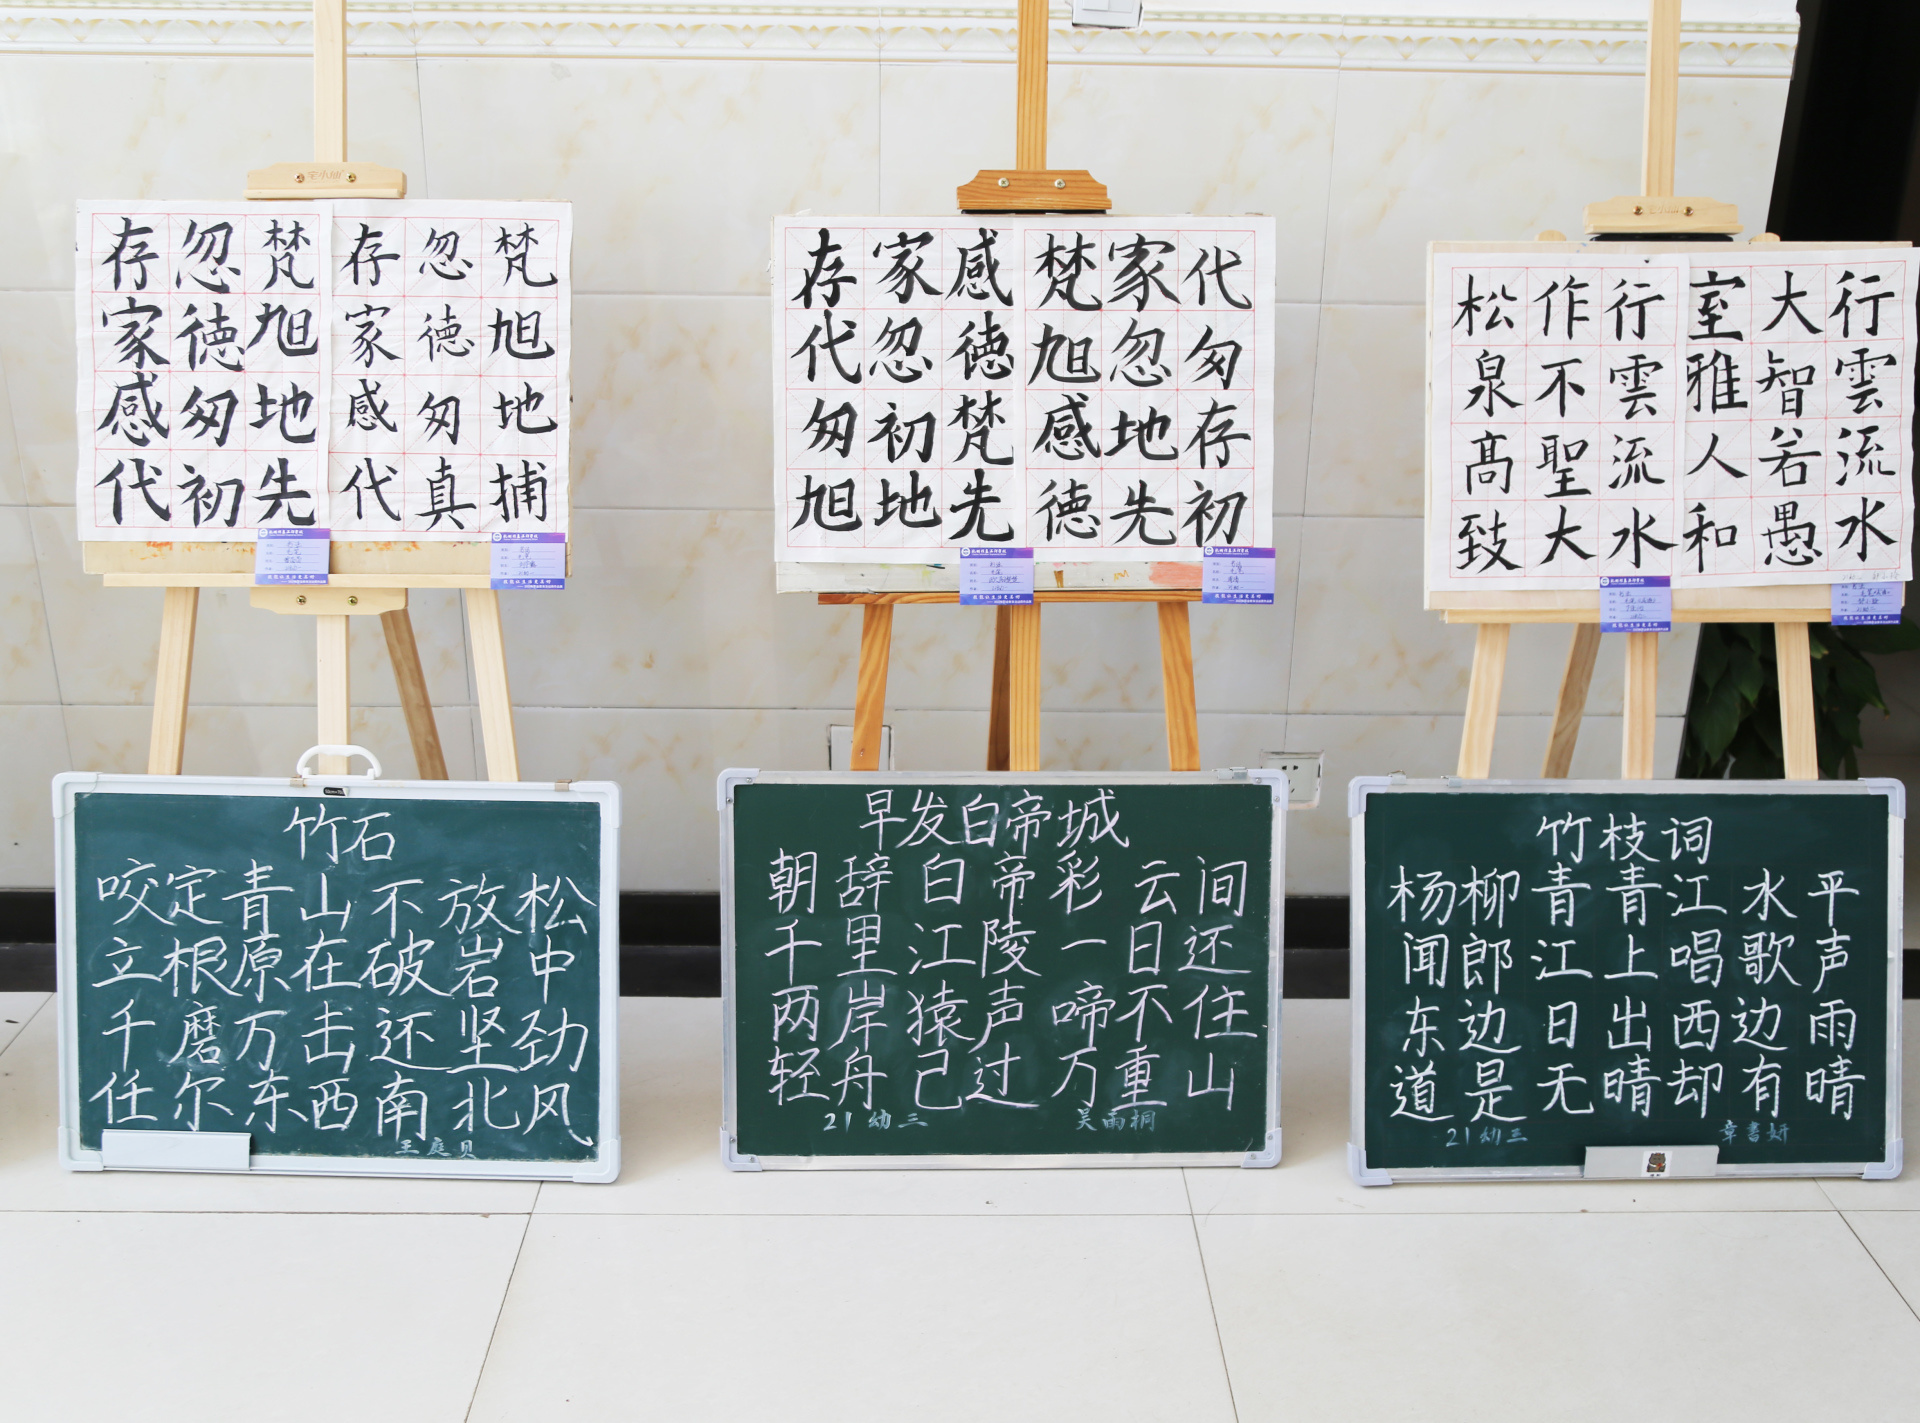 宅小仙
存忽梵
家德旭
感匆地
代初先
存忽梵
家德旭
感匆地
代真捕
存家感
代忽德
匆初梵
旭地先
梵家代
旭忽匆
感地存
德先初
宅小仙
松作行
泉不雲
高聖流
致大水
室大行
雅智雲
人若流
和愚水
竹石
咬定青山不放松
立根原在破岩中
千磨万击还坚劲
任尔东西南北风
王庭贝
早发白帝城
朝辞白帝彩云间
千里江陵一日还
两岸猿声啼不住
轻舟己过万重山
21幼三 吴雨桐
竹枝词
杨柳青青江水平
闻郎江上唱歌声
东边日出西边雨
道是无晴却有晴
21幼三 章書妍